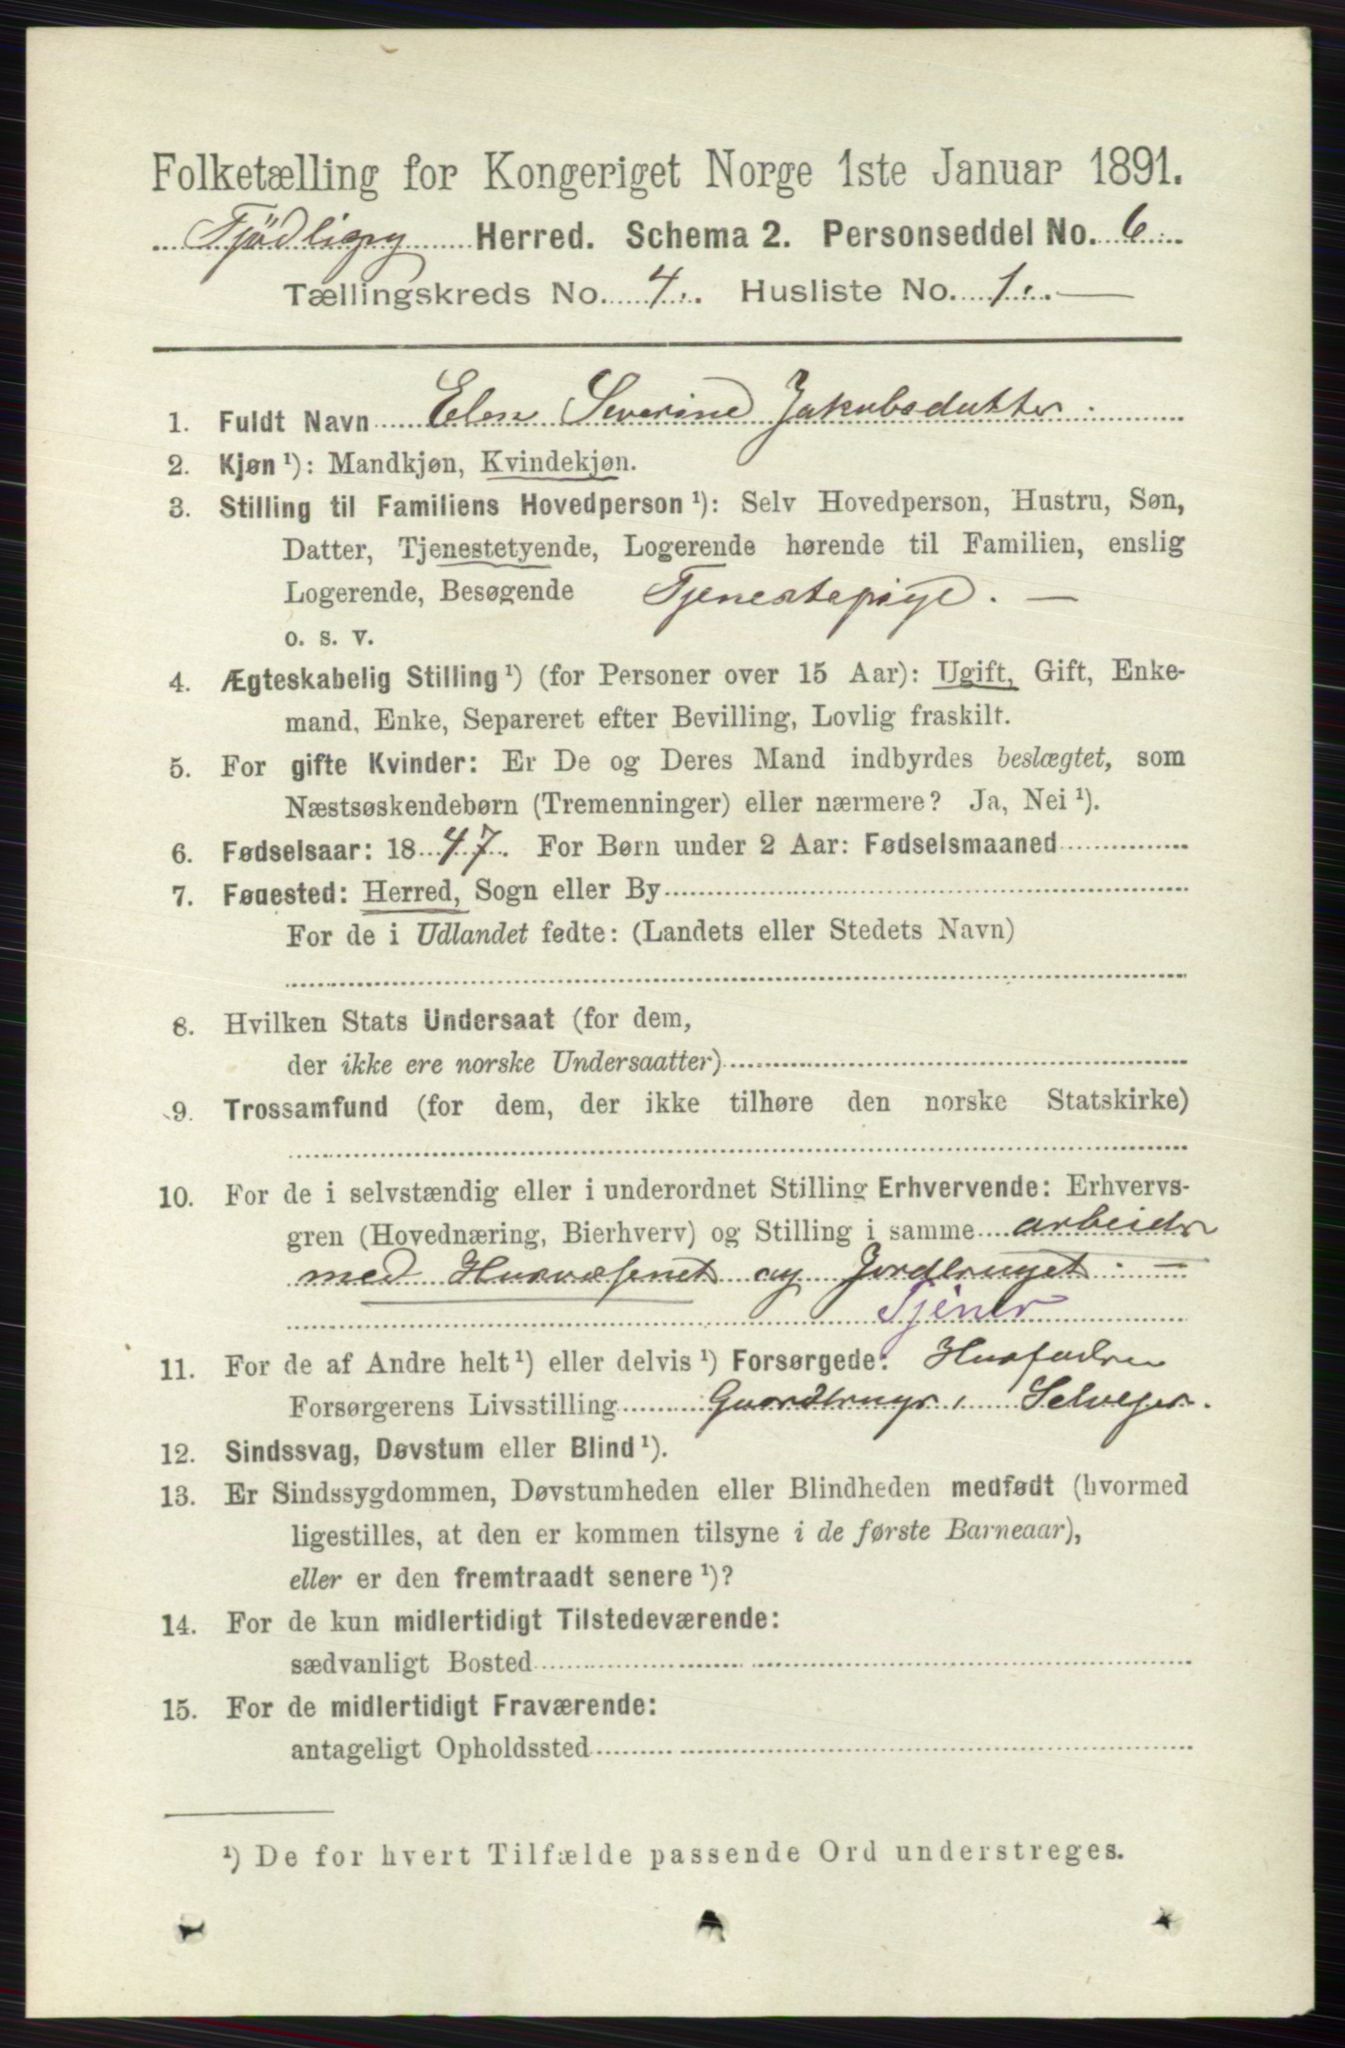 Folketælling for Kongeriget Norge 1ste Januar 1891.
Fjödligny Herred. Schema 2. Personseddel No. 6
Tællingskreds No. 4. Husliste No. 1.
1. Fuldt Navn Elen Severine Jakubsdatter.
2. Kjøn ¹): Mandkjøn, Kvindekjøn.
3. Stilling til Familiens Hovedperson ¹): Selv Hovedperson, Hustru, Søn,
Datter, Tjenestetyende, Logerende hørende til Familien, enslig
Logerende, Besøgende Tjenestepige. —
o. s. v.
4. Ægteskabelig Stilling ¹) (for Personer over 15 Aar): Ugift, Gift, Enke-
mand, Enke, Separeret efter Bevilling, Lovlig fraskilt.
5. For gifte Kvinder: Er De og Deres Mand indbyrdes beslægtet, som
Næstsøskendebørn (Tremenninger) eller nærmere? Ja, Nei ¹).
6. Fødselsaar: 1847. For Børn under 2 Aar: Fødselsmaaned
7. Fødested: Herred, Sogn eller By
For de i Udlandet fødte: (Landets eller Stedets Navn)
8. Hvilken Stats Undersaat (for dem,
der ikke ere norske Undersaatter)
9. Trossamfund (for dem, der ikke tilhøre den norske Statskirke)
10. For de i selvstændig eller i underordnet Stilling Erhvervende: Erhvervs-
gren (Hovednæring, Bierhverv) og Stilling i samme arbeider
med Husvæsenet og Jordbruget. —
Tjener
11. For de af Andre helt ¹) eller delvis ¹) Forsørgede: Husfadren
Forsørgerens Livsstilling Gaardbruger, Selvejer.
12. Sindssvag, Døvstum eller Blind ¹).
13. Er Sindssygdommen, Døvstumheden eller Blindheden medfødt (hvormed
ligestilles, at den er kommen tilsyne i de første Barneaar),
eller er den fremtraadt senere ¹)?
14. For de kun midlertidigt Tilstedeværende:
sædvanligt Bosted
15. For de midlertidigt Fraværende:
antageligt Opholdssted
¹) De for hvert Tilfælde passende Ord understreges.